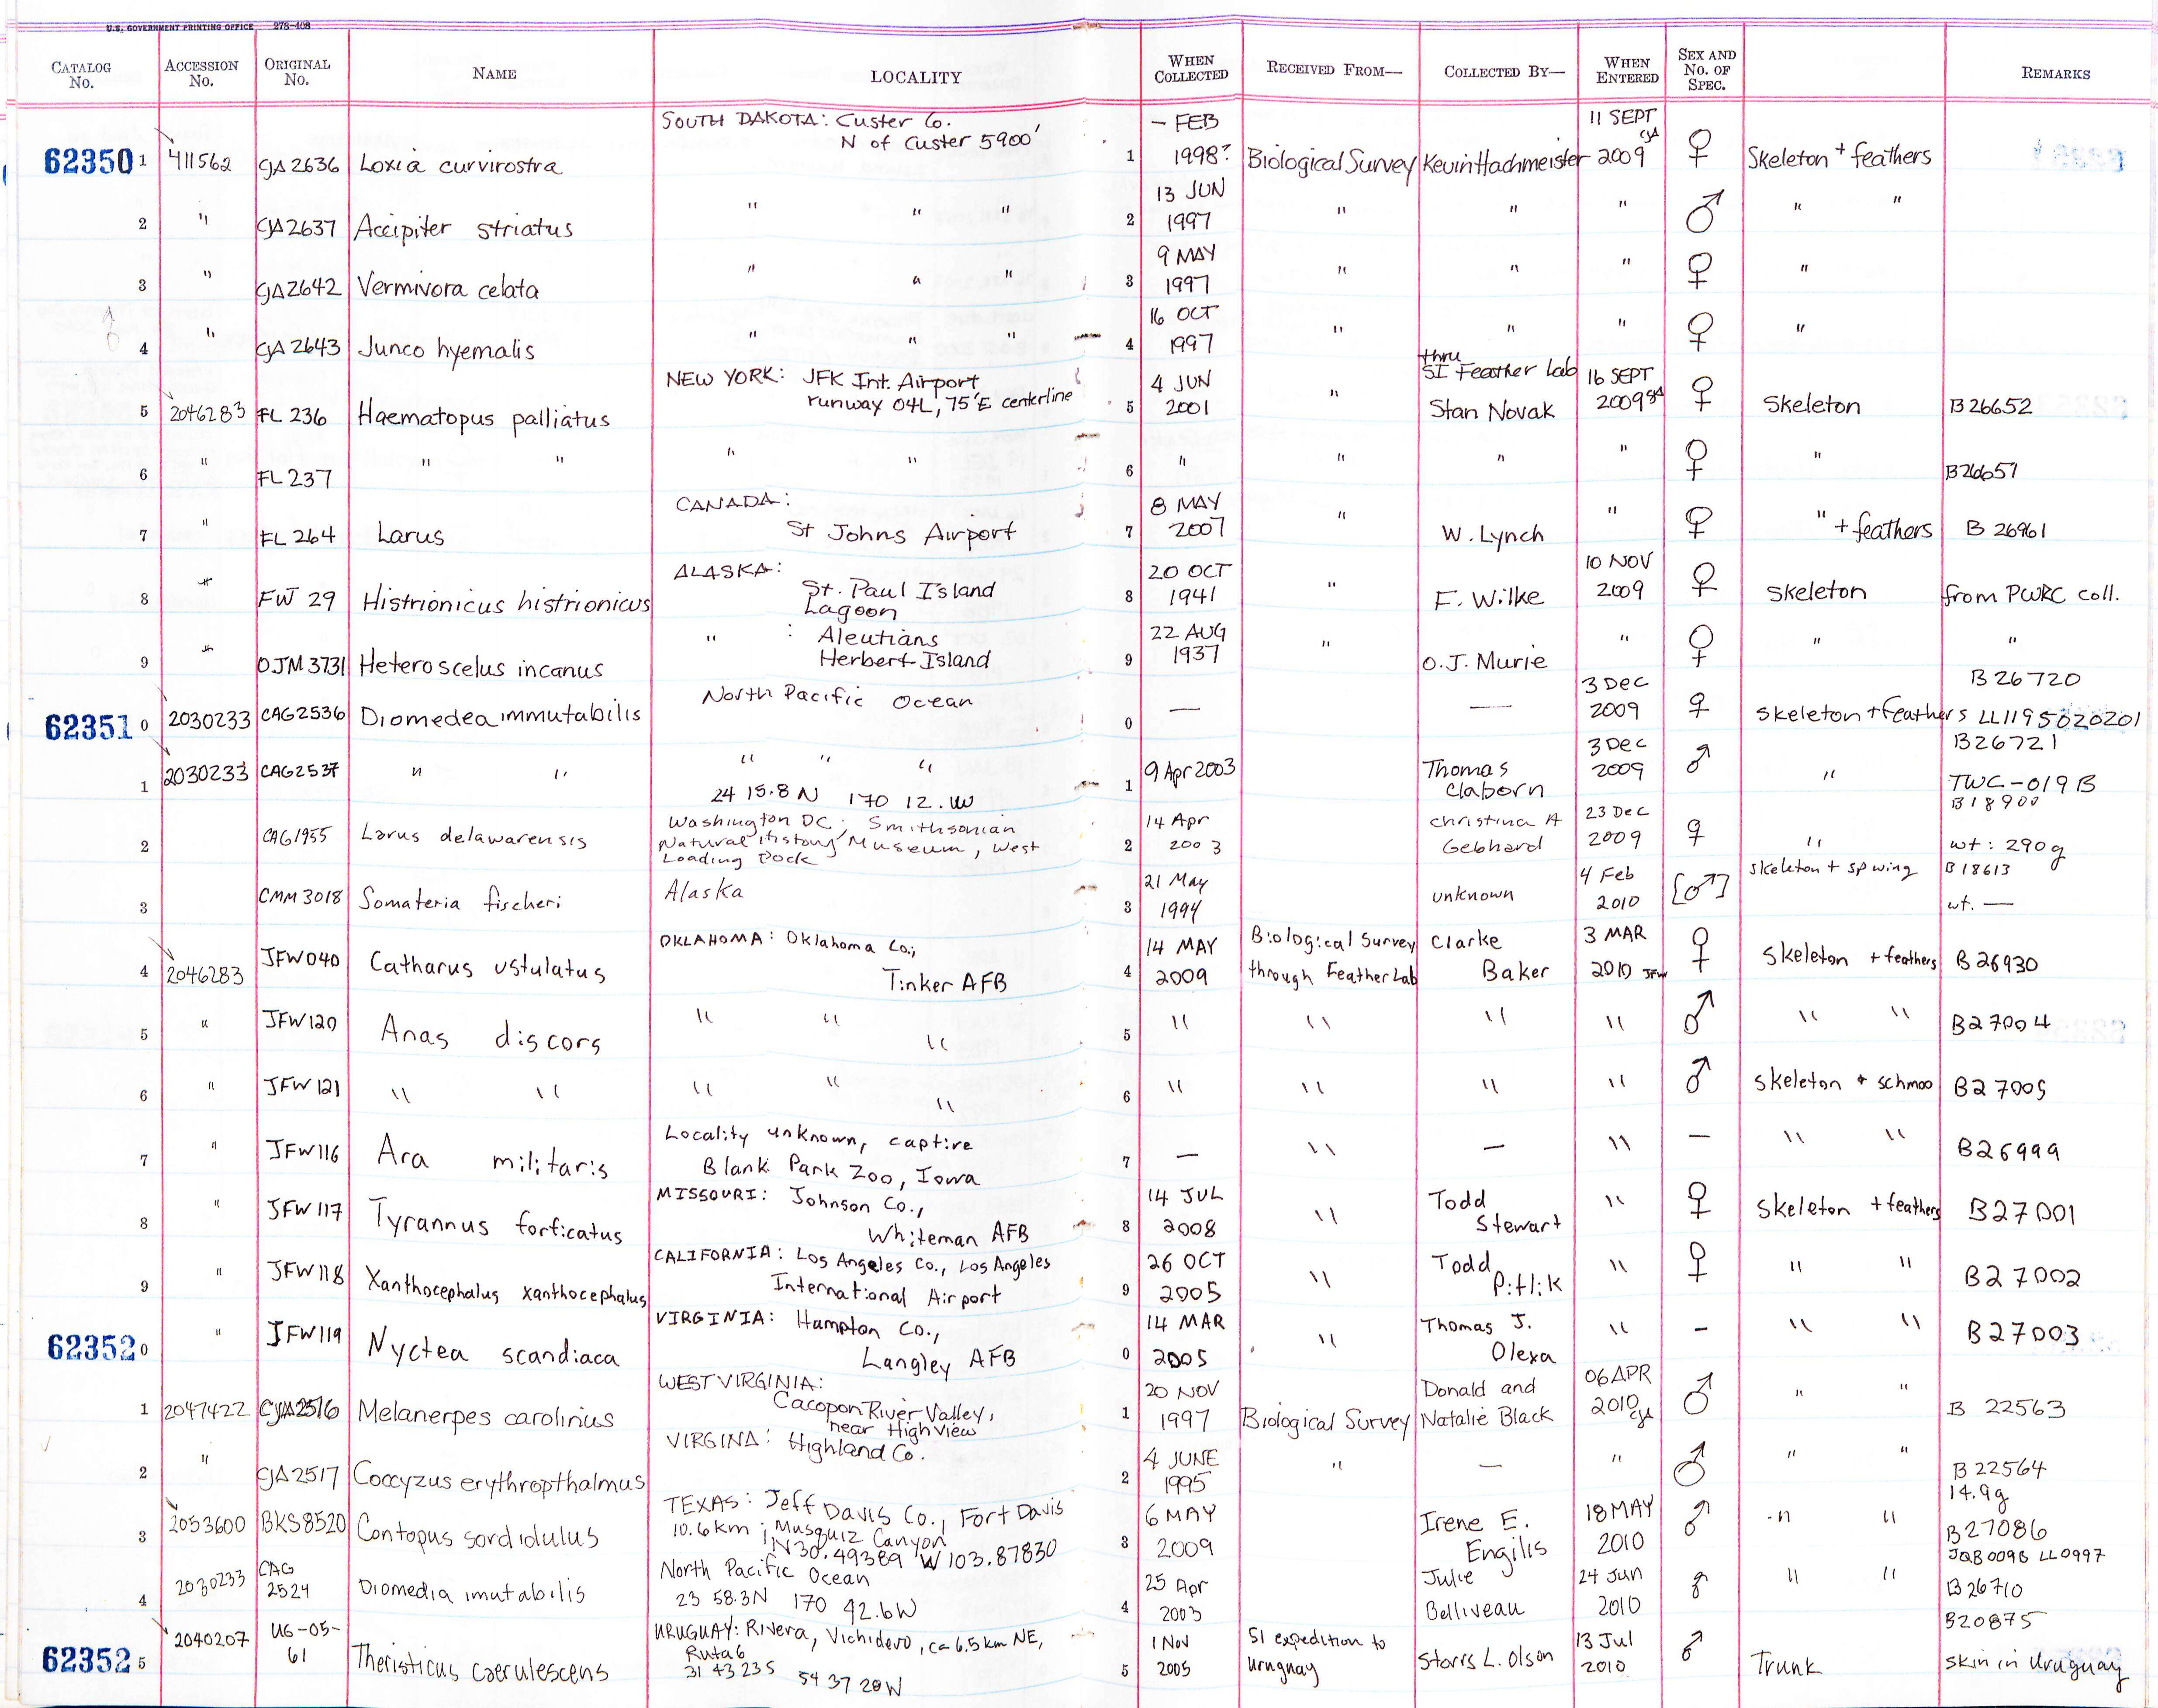 U.S. GOVERNMENT PRINTING OFFICE 278-408
CATALOG No. ACCESSION No. ORIGINAL No. NAME LOCALITY WHEN COLLECTED RECEIVED FROM— COLLECTED BY— WHEN ENTERED SEX AND No. OF SPEC. REMARKS
SOUTH DAKOTA: Custer Co. - FEB 11 SEPT
N of Custer 5900'
62350 1 411562 GJA 2636 Loxia curvirostra 1 1998? Biological Survey Kevin Hachmeister 2009 ♀ Skeleton + feathers
13 JUN
2 " GJA 2637 Accipiter striatus " " " 2 1997 " " " ♂ " "
9 MAY
3 " GJA 2642 Vermivora celata " " " 3 1997 " " " ♀ "
16 OCT
4 " GJA 2643 Junco hyemalis " " " 4 1997 " " " ♀ "
NEW YORK: JFK Int. Airport 4 JUN thru SI Feather Lab 16 SEPT
runway 04L, 75'E centerline
5 2046283 FL 236 Haematopus palliatus 5 2001 " Stan Novak 2009 ♀ Skeleton B 26652
6 " FL 237 " " " " 6 " " " " ♀ " B 26657
CANADA: 8 MAY
7 " FL 264 Larus St Johns Airport 7 2007 " W. Lynch " ♀ " + feathers B 26961
ALASKA: 20 OCT 10 NOV
8 " FW 29 Histrionicus histrionicus St. Paul Island 8 1941 " F. Wilke 2009 ♀ Skeleton from PWRC coll.
Lagoon
" : Aleutians 22 AUG
9 " OJM 3731 Heteroscelus incanus Herbert Island 9 1937 " O.J. Murie " ♀ " "
3 Dec B 26720
62351 0 2030233 CAG2536 Diomedea immutabilis North Pacific Ocean 0 — — 2009 ♀ Skeleton + feathers LL1195020201
3 Dec B26721
1 2030233 CAG2537 " " " " " 1 9 Apr 2003 Thomas Claborn 2009 ♂ " TWC-019B
24 15.8 N 170 12. W
Washington DC; Smithsonian 14 Apr Christina A 23 Dec B18900
2 CAG1955 Larus delawarensis Natural History Museum, West 2 2003 Gebhard 2009 ♀ " wt: 290g
Loading Dock
Alaska 21 May 4 Feb Skeleton + sp wing B18613
3 CMM 3018 Somateria fischeri 3 1994 unknown 2010 [♂] wt. —
OKLAHOMA: Oklahoma Co., 14 MAY Biological Survey Clarke 3 MAR
4 2046283 JFW040 Catharus ustulatus Tinker AFB 4 2009 through Feather Lab Baker 2010 JFW ♀ Skeleton + feathers B 26930
5 " JFW120 Anas discors " " " 5 " " " " ♂ " " B27004
6 " JFW 121 " " " " " 6 " " " " ♂ skeleton + schmoo B27005
Locality unknown, captive
7 " JFW116 Ara militaris Blank Park Zoo, Iowa 7 — " — " — " " B26999
MISSOURI: Johnson Co., 14 JUL Todd
8 " JFW 117 Tyrannus forficatus Whiteman AFB 8 2008 " Stewart " ♀ Skeleton + feathers B27001
CALIFORNIA: Los Angeles Co., Los Angeles 26 OCT Todd
9 " JFW 118 Xanthocephalus xanthocephalus International Airport 9 2005 " Pitlik " ♀ " " B27002
VIRGINIA: Hampton Co., 14 MAR Thomas J.
62352 0 " JFW119 Nyctea scandiaca Langley AFB 0 2005 " Olexa " - " " B27003
WEST VIRGINIA: 20 NOV Donald and 06 APR
1 2047422 GJA2516 Melanerpes carolinus Cacopon River Valley, 1 1997 Biological Survey Natalie Black 2010 ♂ " " B 22563
near High View
VIRGINA: Highland Co. 4 JUNE
2 " GJA 2517 Coccyzus erythropthalmus 2 1995 " — " ♂ " " B 22564
TEXAS: Jeff Davis Co., Fort Davis 6 MAY Irene E. 18 MAY 14.9g
3 2053600 BKS8520 Contopus sordidulus 10.6 km ; Musquiz Canyon 3 2009 Engilis 2010 ♂ " " B27086
N30.49389 W 103.87830
North Pacific Ocean 25 Apr Julie 24 Jun JQB009B LL0997
4 2030233 CAG 2524 Diomedia imutabilis 23 58.3N 170 42.6W 4 2003 Belliveau 2010 " " B26710
URUGUAY: Rivera, Vichidero, ca 6.5 km NE, 1 Nov SI expedition to 13 Jul B20875
Ruta 6
62352 5 2040207 UG-05-61 Theristicus caerulescens 31 43 23S 54 37 20W 5 2005 Uruguay Storrs L. Olson 2010 ♂ Trunk skin in Uruguay